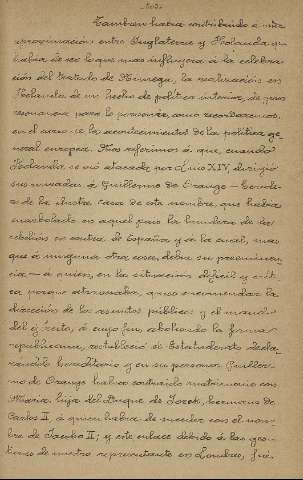 También había contribuido á esta
aproximación entre Inglaterra y Holanda, que
habría de ser lo que mas influyera á la celebra-
ción del tratado de la realización en
Holanda de un hecho de política interior, de gran
resonancia para lo porvenir, como recordaremos,
en el curso de los acontecimientos de la política ge-
neral europea. Nos referimos á que, cuando
Holanda se vió atacada por Luis XIV, dirigió
sus miradas á Guillermo de Orange
de la ilustre casa de este nombre, que había
enarbolado en aquel país la bandera de re-
belión en contra de España, y á la cual, mas
que á ninguna otra cosa, debía su preeminen-
cia — á quien, en la situación difícil y críti-
ca porque atravesaba, quiso encomendar la
dirección de los asuntos públicos y el mando
del ejército, á cuyo fin, aboliendo la forma
republicana, restableció el Estatuderato decla-
rándolo hereditario y en su persona. Guiller-
mo de Orange había contraído matrimonio con
María, hija del Duque de York, hermano de
Carlos II, á quien había de suceder con el nom-
bre de Jacobo II; y este enlace debido á las ges-
tiones de nuestro representante en Londres, fué